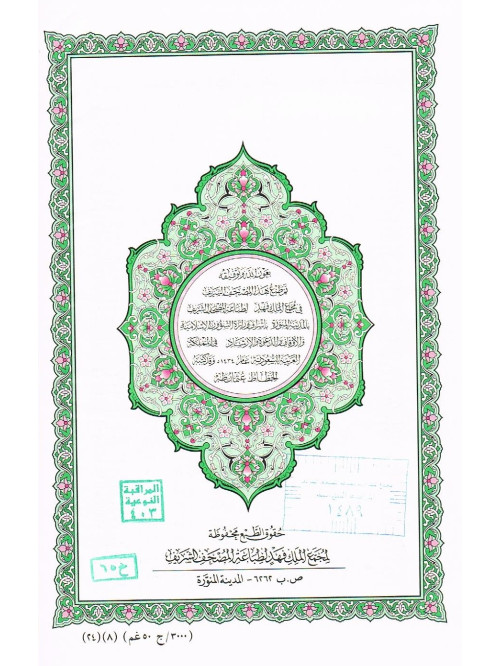 بعون الله وتوفيقه
تم طبع هذا المصحف الشريف
في مجمع الملك فهد لطباعة المصحف الشريف
بالمدينة المنورة بإشراف وزارة الشؤون الإسلامية
والأوقاف والدعوة والإرشاد في المملكة
العربية السعودية عام ١٤٣٤هـ وقد كتبه
الخطاط عثمان طه
المراقبة
النوعية
٤٠٣
١٤٨٩
خ ٦٥
حقوق الطبع محفوظة
لمجمع الملك فهد لطباعة المصحف الشريف
ص.ب ٦٢٦٢ - المدينة المنورة
(٣٠٠٠/ج ٥٠غم) (٨)(٢٤)